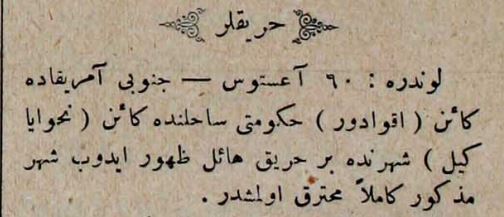 حريقلر
لوندره : ٩٠ آغستوس — جنوبى آمريقاده
كائن ( اقوادور ) حكومتى ساحلنده كائن ( نحوايا
كيل ) شهرنده بر حريق هائل ظهور ايدوب شهر
مذكور كاملاً محترق اولمشدر .